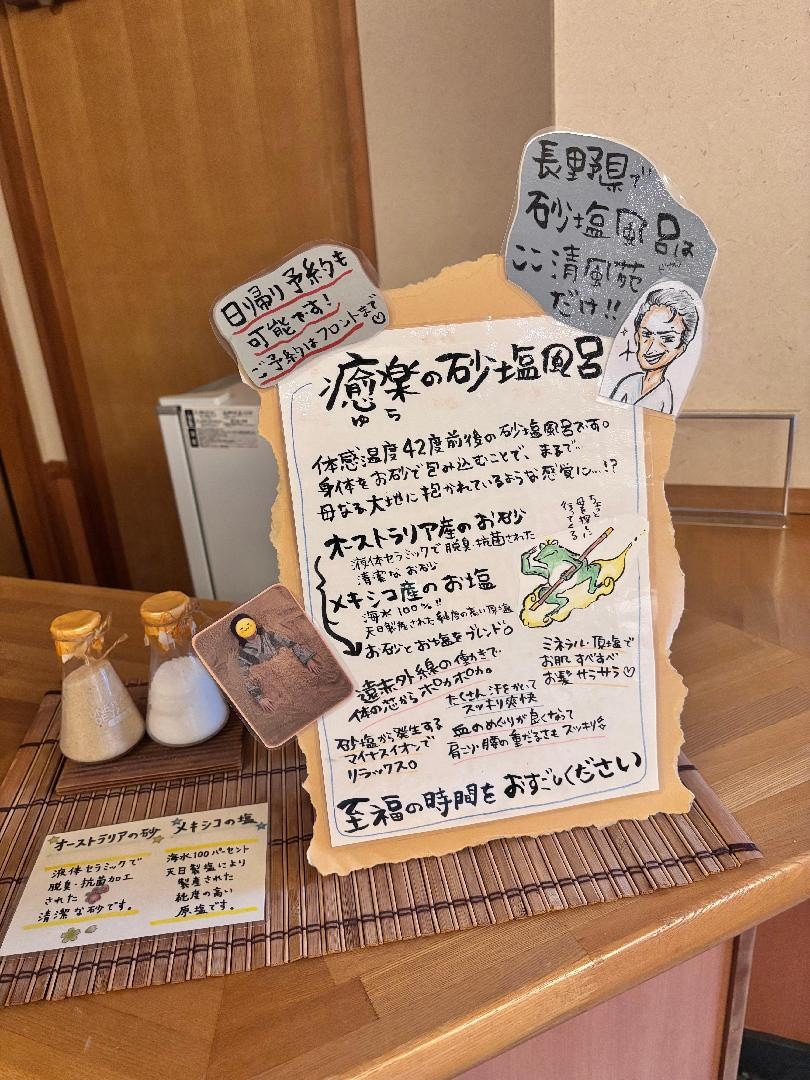 長野県で
砂塩風呂は
ここ清風苑
だけ!!
日帰り予約も
可能です!
ご予約はフロントまで♡
癒楽の砂塩風呂
ゆら
体感温度42度前後の砂塩風呂です。
身体をお砂で包み込むことで、まるで…
母なる大地に抱かれているような感覚に…!?
ちょっと
母を探しに
行ってくる
オーストラリア産のお砂
液体セラミックで脱臭・抗菌された
清潔なお砂
メキシコ産のお塩
海水100%!!
天日製塩された純度の高い原塩
お砂とお塩をブレンド。
ミネラル・頂塩で
お肌すべすべ
お髪サラサラ♡
遠赤外線の働きで
体の芯からポカポカ。
たくさん汗をかいて
スッキリ爽快
砂塩から発生する
マイナスイオンで
リラックス。
血のめぐりが良くなって
肩こり・腰の重だるさもスッキリ
至福の時間をおすごしください
オーストラリアの砂
液体セラミックで
脱臭・抗菌加工
された
清潔な砂です。
メキシコの塩
海水100パーセント
天日製塩により
製産された
純度の高い
原塩です。